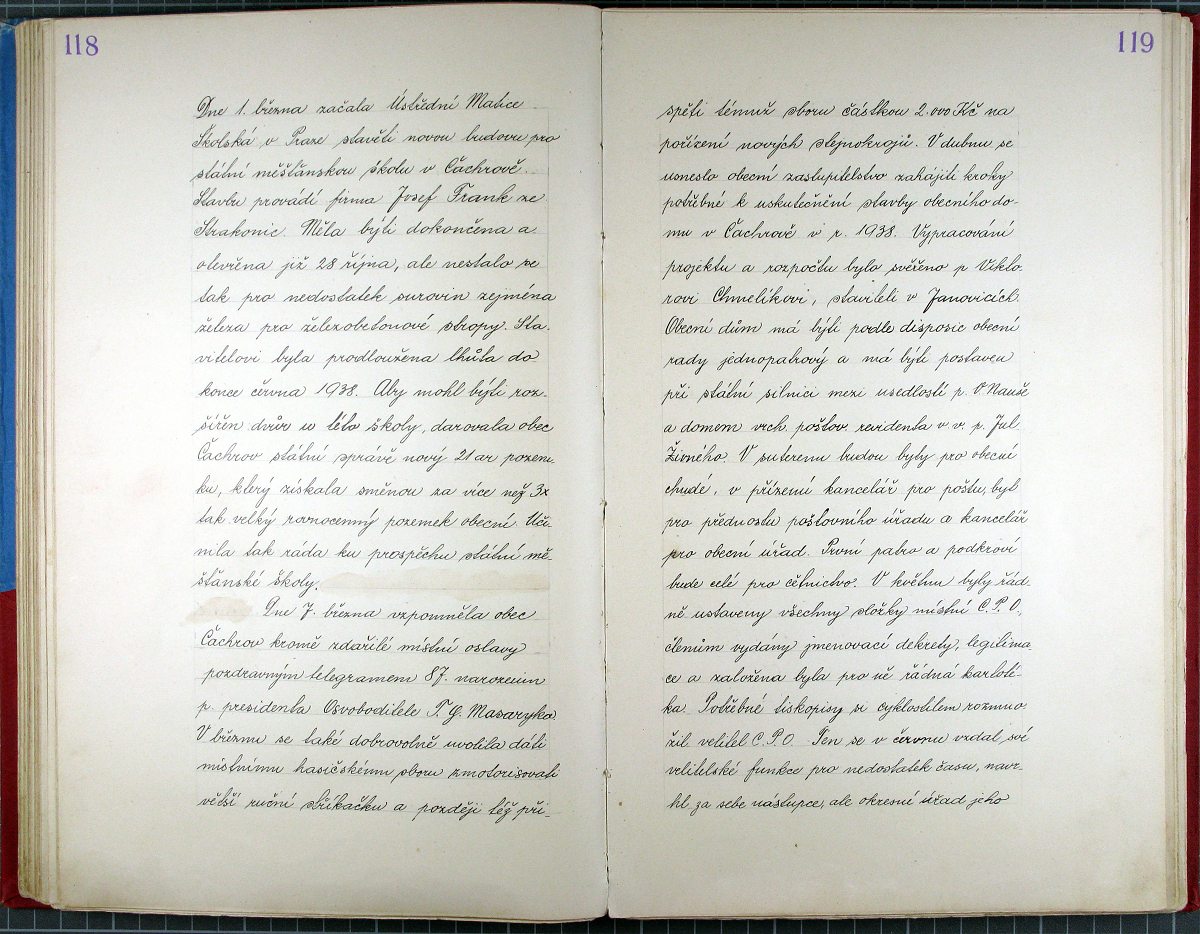 118
Dne 1. března začala Ústřední Matice
Školská v Praze stavěti novou budovu pro
státní měšťanskou školu v Čachrově.
Stavbu provádí firma Josef Frank ze
Strakonic. Měla býti dokončena a
otevřena již 28 října, ale nestalo se
tak pro nedostatek surovin zejména
železa pro železobetonové stropy. Sta-
vitelovi byla prodloužena lhůta do
konce června 1938. Aby mohl býti roz-
šířen dvůr u této školy, darovala obec
Čachrov státní správě nový 21 ar pozem-
ku, který získala směnou za více než 3x
tak velký rovnocenný pozemek obecní. Uči-
nila tak ráda ku prospěchu státní mě-
šťanské školy.
Dne 7. března vzpomněla obec
Čachrov kromě zdařilé místní oslavy
pozdravným telegramem 87. narozenin
p. presidenta Osvoboditele T. G. Masaryka.
V březnu se také dobrovolně uvolila dáti
místnímu hasičskému sboru zmotorisovati
větší ruční stříkačku a později též při-
119
spěti témuž sboru částkou 2.000 Kč na
pořízení nových stejnokrojů. V dubnu se
usneslo obecní zastupitelstvo zahájiti kroky
potřebné k uskutečnění stavby obecního do-
mu v Čachrově v r. 1938. Vypracování
projektu a rozpočtu bylo svěřeno p Vikto-
rovi Chmelíkovi, staviteli v Janovicích.
Obecní dům má býti podle disposic obecní
rady jednopatrový a má býti postaven
při státní silnici mezi usedlostí p.
a domem vrch. poštov revidenta v v. p. Jul
Živného. V suterenu budou byty pro obecní
chudé, v přízemí kancelář pro poštu, byt
pro přednostu poštovního úřadu a kancelář
pro obecní úřad. První patro a podkroví
bude celé pro četnictvo. V květnu byly řád-
ně ustaveny všechny složky místní C. P. O.,
členům vydány jmenovací dekrety, legitima-
ce a založena byla pro ně řádná kartoté-
ka. Potřebné tiskopisy si cyklostilem rozmno-
žil velitel C. P. O. Ten se v červnu vzdal své
velitelské funkce pro nedostatek času, navr-
hl za sebe nástupce, ale okresní úřad jeho